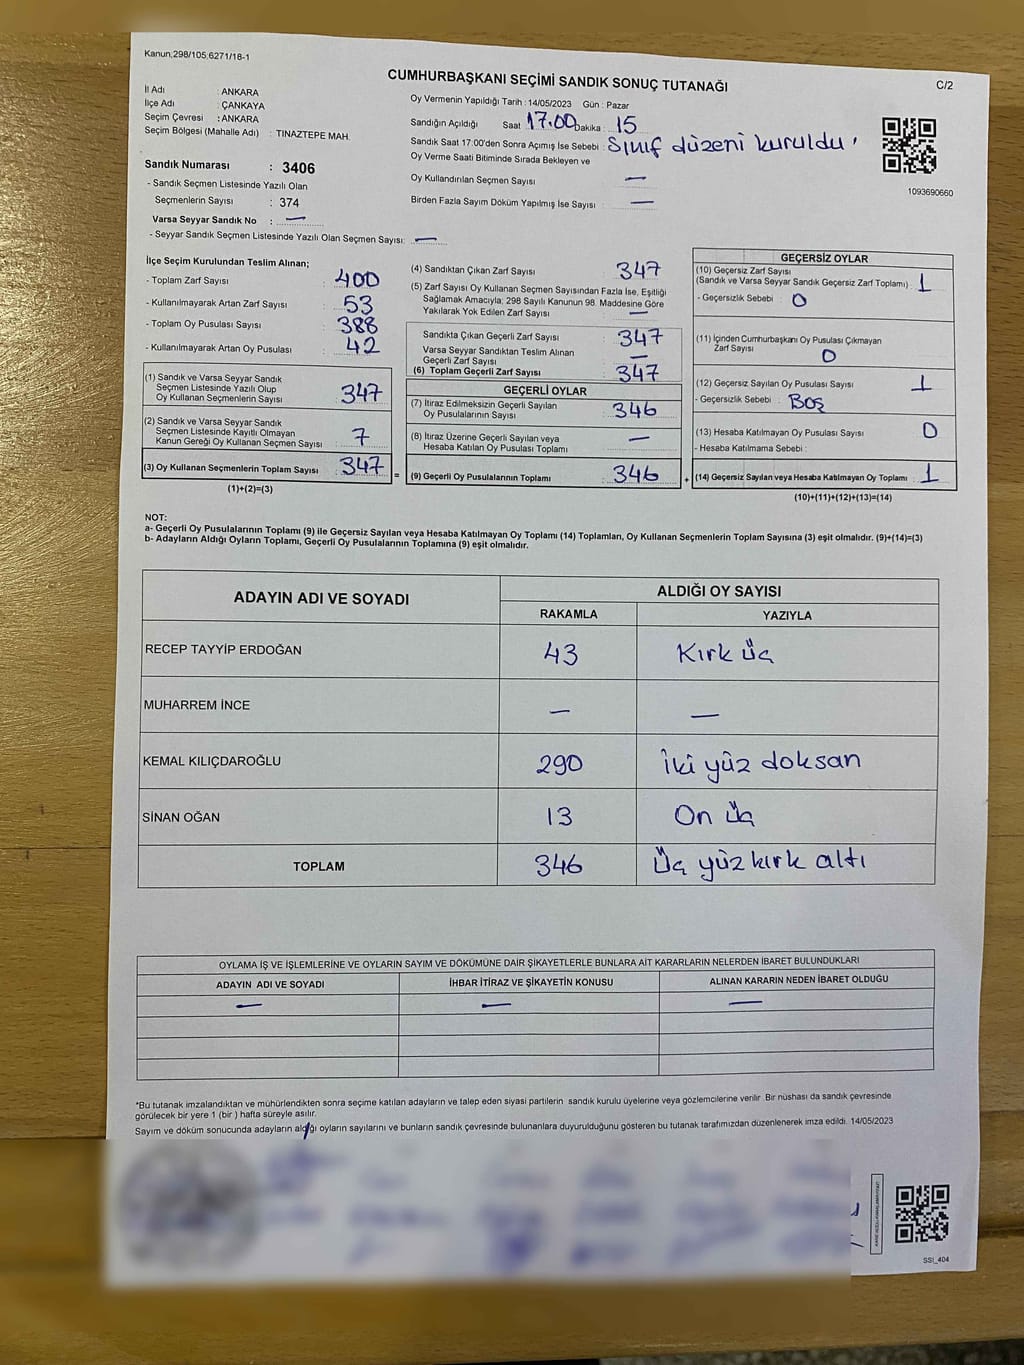 Kanun;298/105;6271/18-1
CUMHURBAŞKANI SEÇİMİ SANDIK SONUÇ TUTANAĞI
C/2
İl Adı : ANKARA
İlçe Adı : ÇANKAYA
Seçim Çevresi : ANKARA
Seçim Bölgesi (Mahalle Adı) : TINAZTEPE MAH.
Sandık Numarası : 3406
- Sandık Seçmen Listesinde Yazılı Olan
Seçmenlerin Sayısı : 374
Varsa Seyyar Sandık No : —
- Seyyar Sandık Seçmen Listesinde Yazılı Olan Seçmen Sayısı: —
Oy Vermenin Yapıldığı Tarih : 14/05/2023 Gün : Pazar
Sandığın Açıldığı Saat 17.00 Dakika : 15
Sandık Saat 17:00'den Sonra Açımış İse Sebebi : Sınıf düzeni kuruldu
Oy Verme Saati Bitiminde Sırada Bekleyen ve
Oy Kullandırılan Seçmen Sayısı —
Birden Fazla Sayım Döküm Yapılmış İse Sayısı : —
1093690660
İlçe Seçim Kurulundan Teslim Alınan;
- Toplam Zarf Sayısı : 400
- Kullanılmayarak Artan Zarf Sayısı : 53
- Toplam Oy Pusulası Sayısı : 388
- Kullanılmayarak Artan Oy Pusulası : 42
(1) Sandık ve Varsa Seyyar Sandık
Seçmen Listesinde Yazılı Olup
Oy Kullanan Seçmenlerin Sayısı : 347
(2) Sandık ve Varsa Seyyar Sandık
Seçmen Listesinde Kayıtlı Olmayan
Kanun Gereği Oy Kullanan Seçmen Sayısı : 7
(3) Oy Kullanan Seçmenlerin Toplam Sayısı : 347
(1)+(2)=(3)
(4) Sandıktan Çıkan Zarf Sayısı : 347
(5) Zarf Sayısı Oy Kullanan Seçmen Sayısından Fazla İse, Eşitliği
Sağlamak Amacıyla; 298 Sayılı Kanunun 98. Maddesine Göre
Yakılarak Yok Edilen Zarf Sayısı : —
Sandıkta Çıkan Geçerli Zarf Sayısı : 347
Varsa Seyyar Sandıktan Teslim Alınan
Geçerli Zarf Sayısı : —
(6) Toplam Geçerli Zarf Sayısı : 347
GEÇERLİ OYLAR
(7) İtiraz Edilmeksizin Geçerli Sayılan
Oy Pusulalarının Sayısı : 346
(8) İtiraz Üzerine Geçerli Sayılan veya
Hesaba Katılan Oy Pusulası Toplamı : —
= (9) Geçerli Oy Pusulalarının Toplamı : 346 +
GEÇERSİZ OYLAR
(10) Geçersiz Zarf Sayısı
(Sandık ve Varsa Seyyar Sandık Geçersiz Zarf Toplamı) : 1
- Geçersizlik Sebebi : 0
(11) İçinden Cumhurbaşkanı Oy Pusulası Çıkmayan
Zarf Sayısı : 0
(12) Geçersiz Sayılan Oy Pusulası Sayısı : 1
- Geçersizlik Sebebi : Boş
(13) Hesaba Katılmayan Oy Pusulası Sayısı : 0
- Hesaba Katılmama Sebebi :
(14) Geçersiz Sayılan veya Hesaba Katılmayan Oy Toplamı : 1
(10)+(11)+(12)+(13)=(14)
NOT:
a- Geçerli Oy Pusulalarının Toplamı (9) ile Geçersiz Sayılan veya Hesaba Katılmayan Oy Toplamı (14) Toplamları, Oy Kullanan Seçmenlerin Toplam Sayısına (3) eşit olmalıdır. (9)+(14)=(3)
b- Adayların Aldığı Oyların Toplamı, Geçerli Oy Pusulalarının Toplamına (9) eşit olmalıdır.
ADAYIN ADI VE SOYADI ALDIĞI OY SAYISI
RAKAMLA YAZIYLA
RECEP TAYYİP ERDOĞAN 43 Kırk üç
MUHARREM İNCE — —
KEMAL KILIÇDAROĞLU 290 İki yüz doksan
SİNAN OĞAN 13 On üç
TOPLAM 346 Üç yüz kırk altı
OYLAMA İŞ VE İŞLEMLERİNE VE OYLARIN SAYIM VE DÖKÜMÜNE DAİR ŞİKAYETLERLE BUNLARA AİT KARARLARIN NELERDEN İBARET BULUNDUKLARI
ADAYIN ADI VE SOYADI İHBAR İTİRAZ VE ŞİKAYETİN KONUSU ALINAN KARARIN NEDEN İBARET OLDUĞU
— — —
*Bu tutanak imzalandıktan ve mühürlendikten sonra seçime katılan adayların ve talep eden siyasi partilerin sandık kurulu üyelerine veya gözlemcilerine verilir. Bir nüshası da sandık çevresinde
görülecek bir yere 1 (bir ) hafta süreyle asılır.
Sayım ve döküm sonucunda adayların aldığı oyların sayılarını ve bunların sandık çevresinde bulunanlara duyurulduğunu gösteren bu tutanak tarafımızdan düzenlenerek imza edildi. 14/05/2023
SSI_404